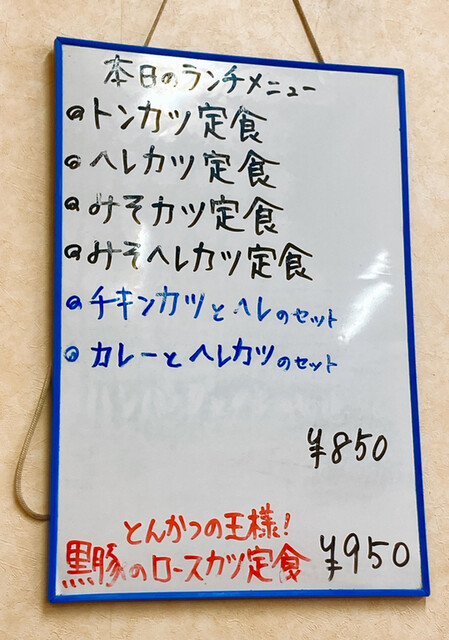 本日のランチメニュー
トンカツ定食
ヘレカツ定食
みそカツ定食
みそヘレカツ定食
チキンカツとヘレのセット
カレーとヘレカツのセット
¥850
とんかつの王様!
黒豚のロースカツ定食 ¥950